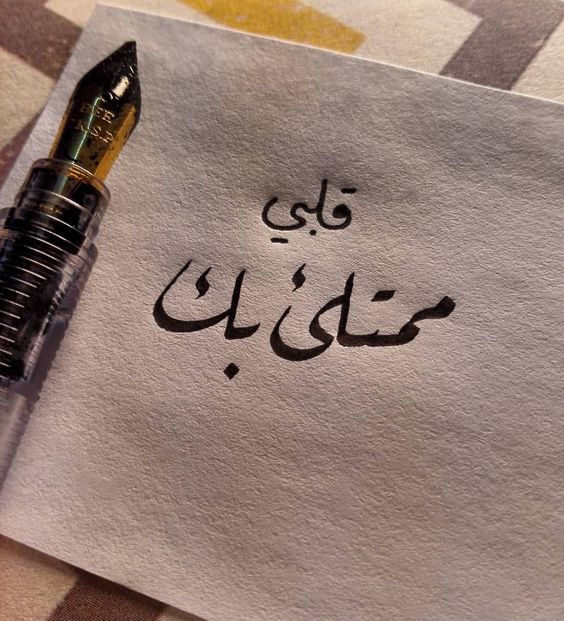 قلبي
ممتلئ بك